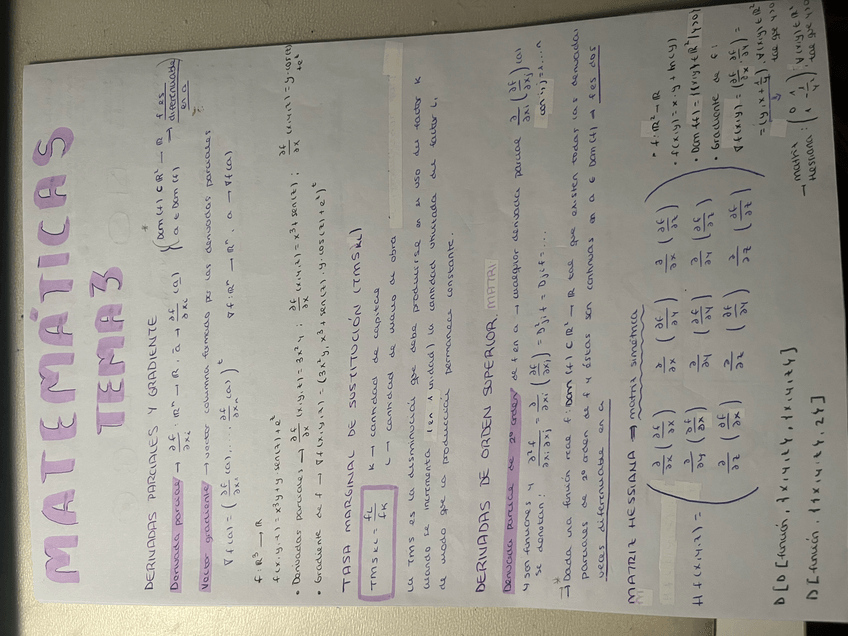 MATEMÁTICAS
TEMA 3
DERIVADAS PARCIALES Y GRADIENTE
Derivada parcial → ∂f/∂xi : ℝⁿ → ℝ : a → ∂f/∂xi (a) { Dom(f) ⊂ ℝⁿ → ℝ
a ∈ Dom(f) → f es diferenciable en a
Vector gradiente → vector columna formado por las derivadas parciales
∇f(a) = (∂f/∂x₁ (a), ... ∂f/∂xn (a))ᵗ ∇f: ℝⁿ → ℝⁿ. a → ∇f(a)
f: ℝ³ → ℝ
f(x,y,z) = x³y + y sen(z) + eᶻ
• Derivadas parciales → ∂f/∂x (x,y,z) = 3x²y ; ∂f/∂x (x,y,z) = x³ + sen(z) ; ∂f/∂x (x,y,z) = y·cos(z) + eᶻ
• Gradiente de f → ∇f(x,y,z) = (3x²y, x³ + sen(z), y·cos(z) + eᶻ)ᵗ
TASA MARGINAL DE SUSTITUCIÓN (TMS KL)
TMS KL = fL/fK
K → cantidad de capital
L → cantidad de mano de obra
La TMS es la disminución que debe producirse en el uso del factor K
cuando se incrementa (en 1 unidad) la cantidad utilizada del factor L,
de modo que la producción permanece constante.
DERIVADAS DE ORDEN SUPERIOR. MATRI
Derivada parcial de 2º orden de f en a → cualquier derivada parcial ∂/∂xi (∂f/∂xj) (a)
con i,j = 1, ... n
y son funciones y se denotan: ∂²f/∂xi ∂xj = ∂/∂xi (∂f/∂xj) = D²jif = Dj,if = ...
→ Dada una función real f: Dom(f) ⊂ ℝⁿ → ℝ tal que existen todas las derivadas
parciales de 2º orden de f y éstas son continuas en a ∈ Dom(f) → f es dos
veces diferenciable en a
MATRIZ HESSIANA → matriz simétrica
Hf(x,y,z) =
∂/∂x (∂f/∂x) ∂/∂x (∂f/∂y) ∂/∂x (∂f/∂z)
∂/∂y (∂f/∂x) ∂/∂y (∂f/∂y) ∂/∂y (∂f/∂z)
∂/∂z (∂f/∂x) ∂/∂z (∂f/∂y) ∂/∂z (∂f/∂z)
• f: ℝ² → ℝ
• f(x,y) = x·y + ln(y)
• Dom(f) = {(x,y) ∈ ℝ² / y>0}
• Gradiente de f:
∇f(x,y) = (∂f/∂x, ∂f/∂y) =
= (y, x + 1/y), ∀(x,y) ∈ ℝ²
tal que y>0
→ matriz
Hessiana: (0 1
1 -1/y²), ∀(x,y) ∈ ℝ²
tal que y>0
D[D[función, {{x,y,z}}, {{x,y,z}}]
D[función, {{x,y,z}, 2}]